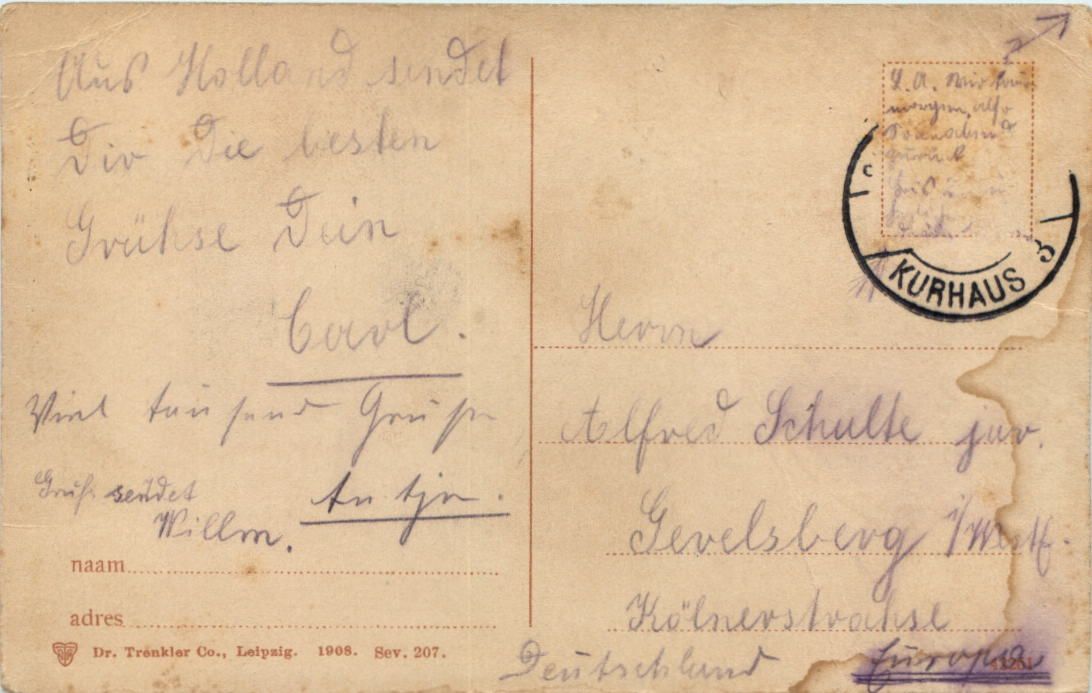 Aus Holland sendet
Dir Die besten
Grühse Dein
Carl.
Viel tausend Grüße
Antje.
Gruß sendet
Willm.
naam
adres
Dr. Trenkler Co., Leipzig. 1908. Sev. 207.
L. A. Wir
morgen, also
Sonnabend
zurück
KURHAUS 3
Herrn
Alfred Schulte jur.
Gevelsberg i/Westf.
Kölnerstrahse
Deutschland Europa